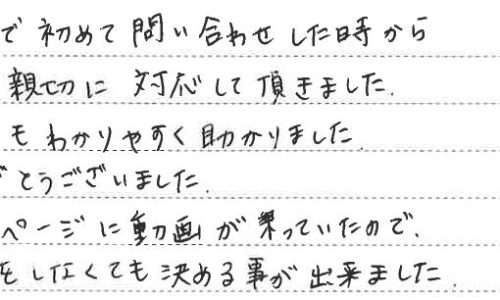 で初めて問い合わせした時から
親切に対応して頂きました.
もわかりやすく助かりました.
とうございました.
ページに動画が乗っていたので.
をしなくても決める事が出来ました.